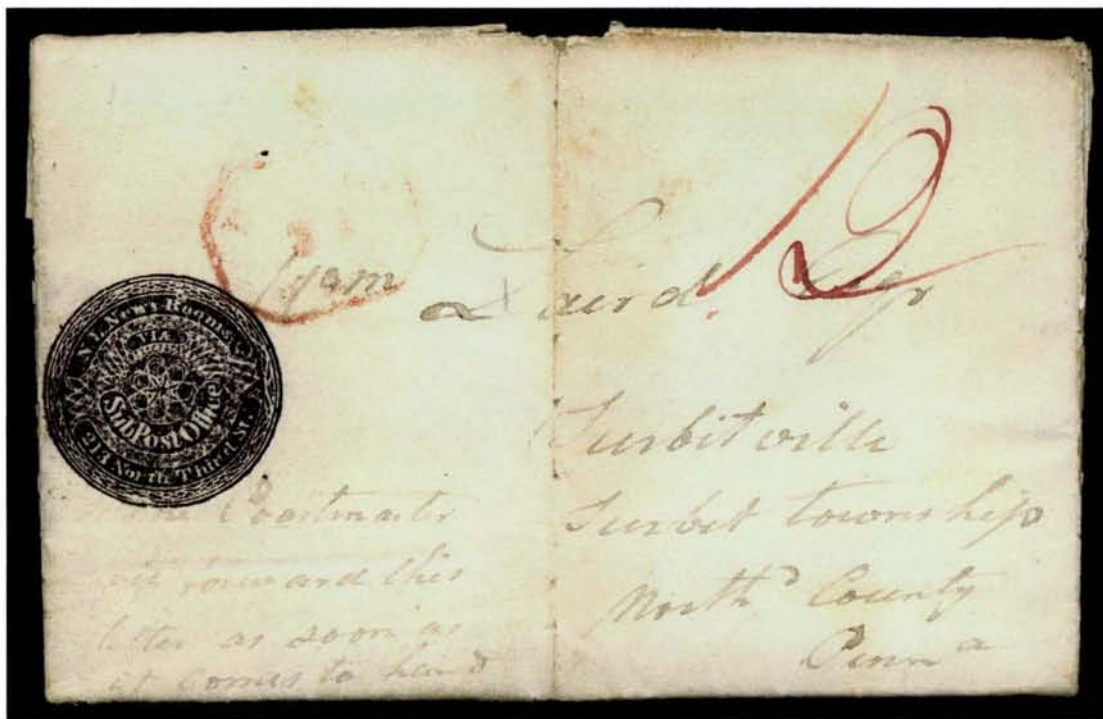 12
Laird Esqr
Turbitville
Turbet township
North.d County
Penn a
N.L. News Rooms
VIA
Sub Post Office
213 North Third St.
Postmaster
forward this
letter as soon as
it comes to hand